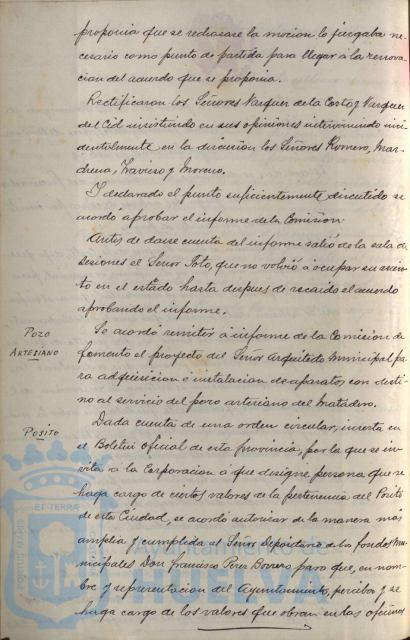 proponia que se rechasase la mocion lo juzgaba ne-
cesario como punto de partida para llegar á la renova-
cion del acuerdo que se proponia.
Rectificaron los Señores Vazquez de la Corte y Vazquez
del Cid insistiendo en sus opiniones interviniendo inci-
dentalmente en la discusion los Señores Romero, Mar-
chena, Traviero y Moreno.
Y declarado el punto suficientemente discutido se
acordó aprobar el informe de la Comision.
Antes de darse cuenta del informe salió de la sala de
sesiones el Señor Soto, que no volvió á ocupar su asien-
to en el estado hasta despues de recaido el acuerdo
aprobando el informe.
POZO
ARTESIANO
Se acordó remitir á informe de la Comision de
fomento el proyecto del Señor Arquitecto Municipal pa-
ra adquisicion é instalacion de aparatos con desti-
no al servicio del pozo artesiano del Matadero.
POSITO
Dada cuenta de una orden circular, inserta en
el Boletin Oficial de esta provincia, por la que se in-
vita á la Corporacion á que designe persona que se
haga cargo de ciertos valores de la pertenencia del Posito
de esta Ciudad, se acordó autorizar de la manera mas
amplia y cumplida al Señor Depositario de los fondos Mu-
nicipales Don Francisco Perez Borrero para que, en nom-
bre y representacion del Ayuntamiento, perciba y se
haga cargo de los valores que obran en las oficinas